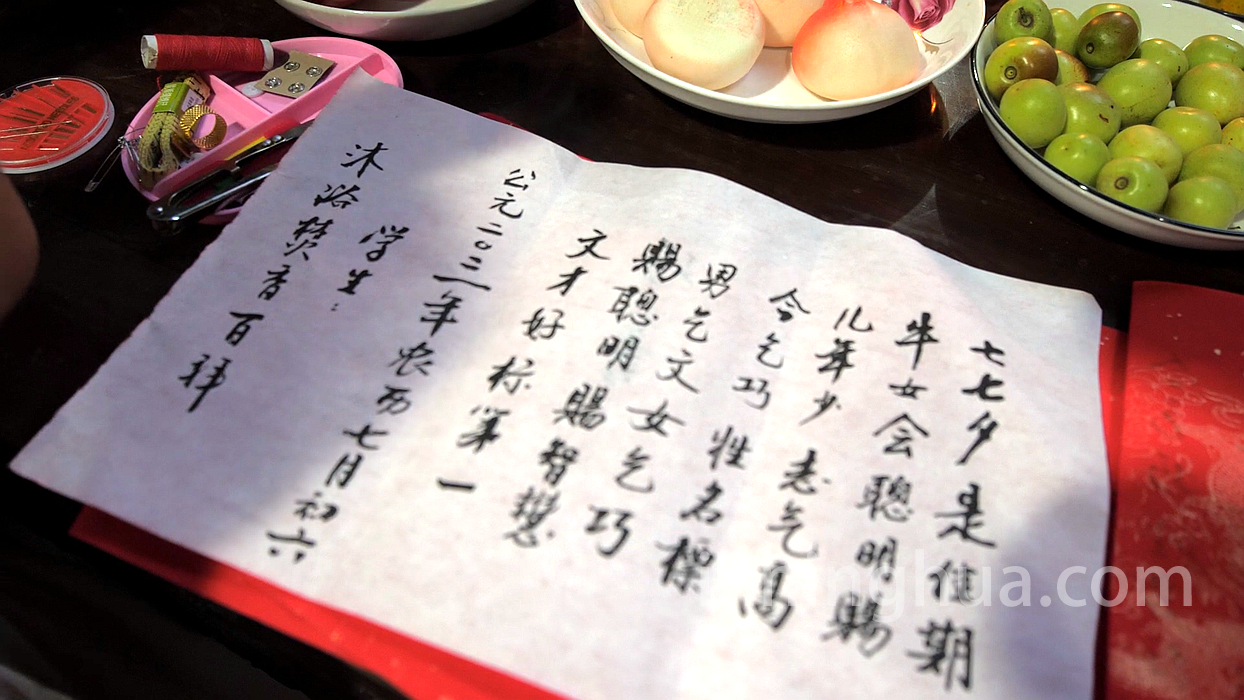 七七夕是佳期
牛女会聰明賜
儿年少志气高
今乞巧性名標
男乞文女乞巧
賜聰明賜智慧
文才好标第一
公元二〇二三年农历七月初六
学生：
沐浴焚香百拜
nghua.com